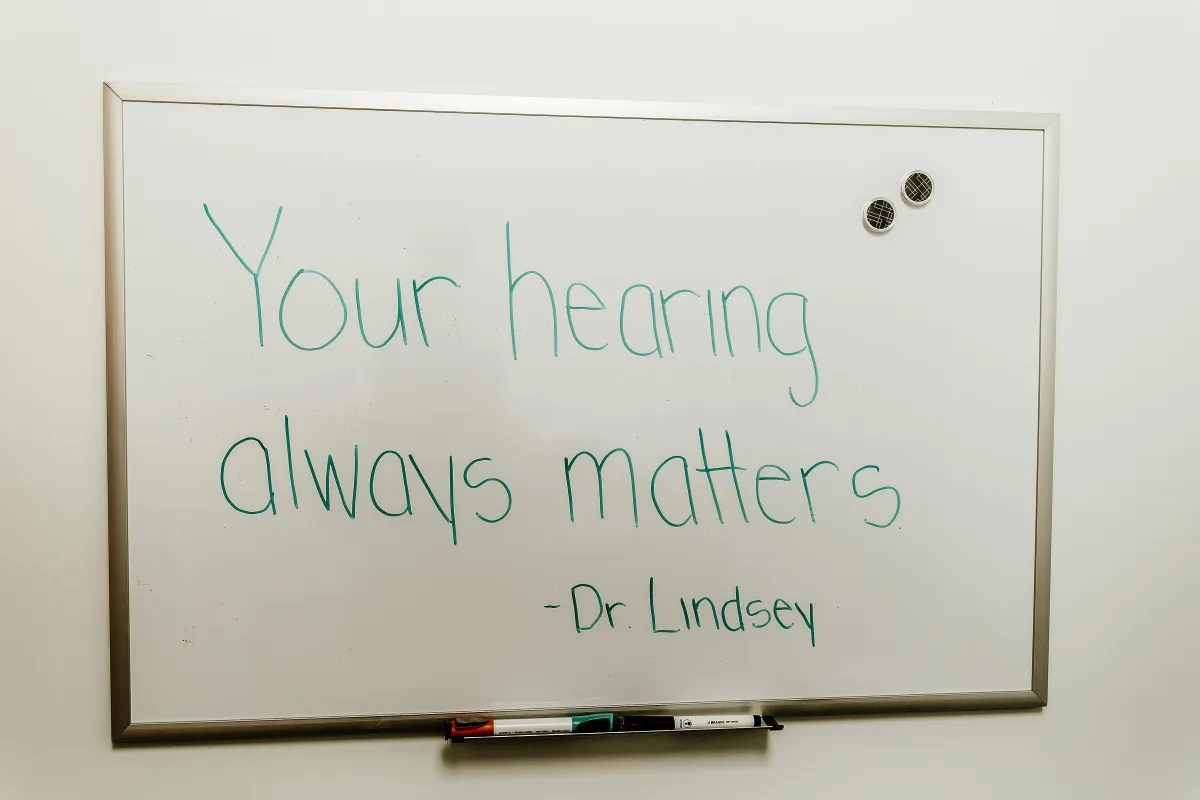 Your hearing
always matters.
-Dr. Lindsey
U BRANDS